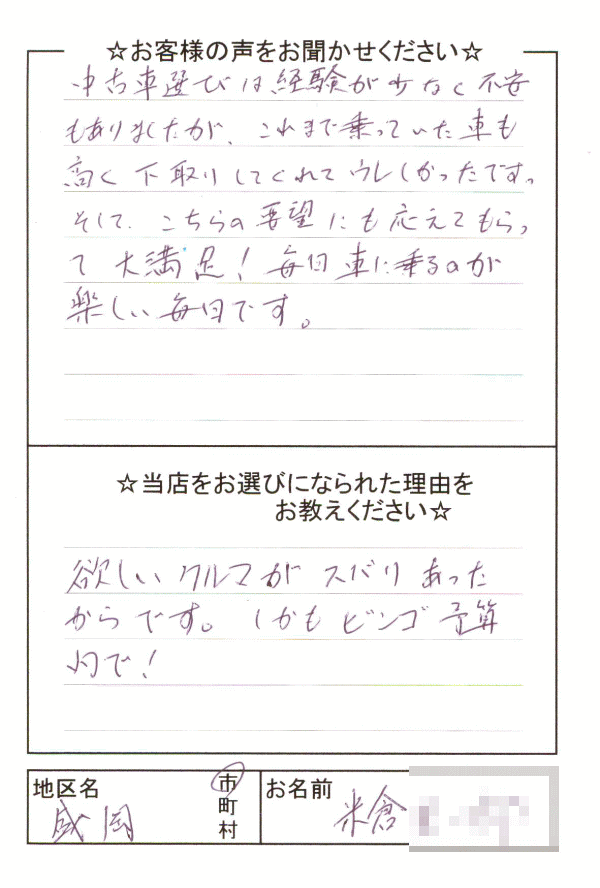 ☆お客様の声をお聞かせください☆
中古車選びは経験が少なく不安
もありましたが、これまで乗っていた車も
高く下取りしてくれてウレしかったです。
そして、こちらの要望にも応えてもらっ
て大満足!毎日車に乗るのが
楽しい毎日です。
☆当店をお選びになられた理由を
お教えください☆
欲しいクルマがズバリあった
からです。しかもビンゴ予算
内で!
地区名 市 お名前
盛岡 町 米倉
村